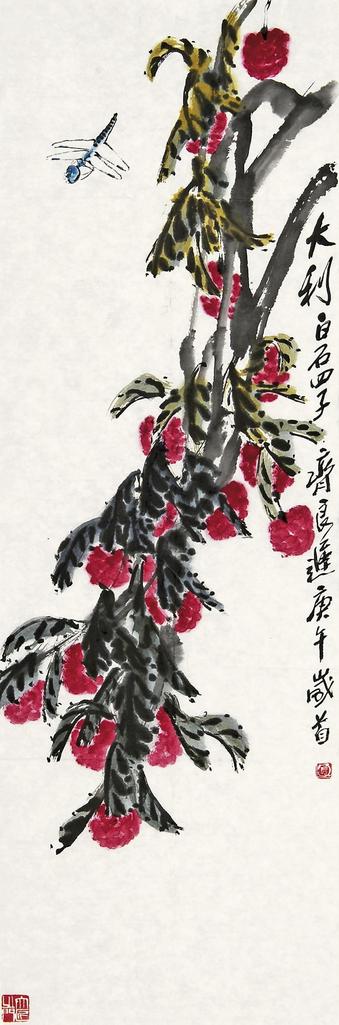 大利 白石四子 齊良遲 庚午歲首